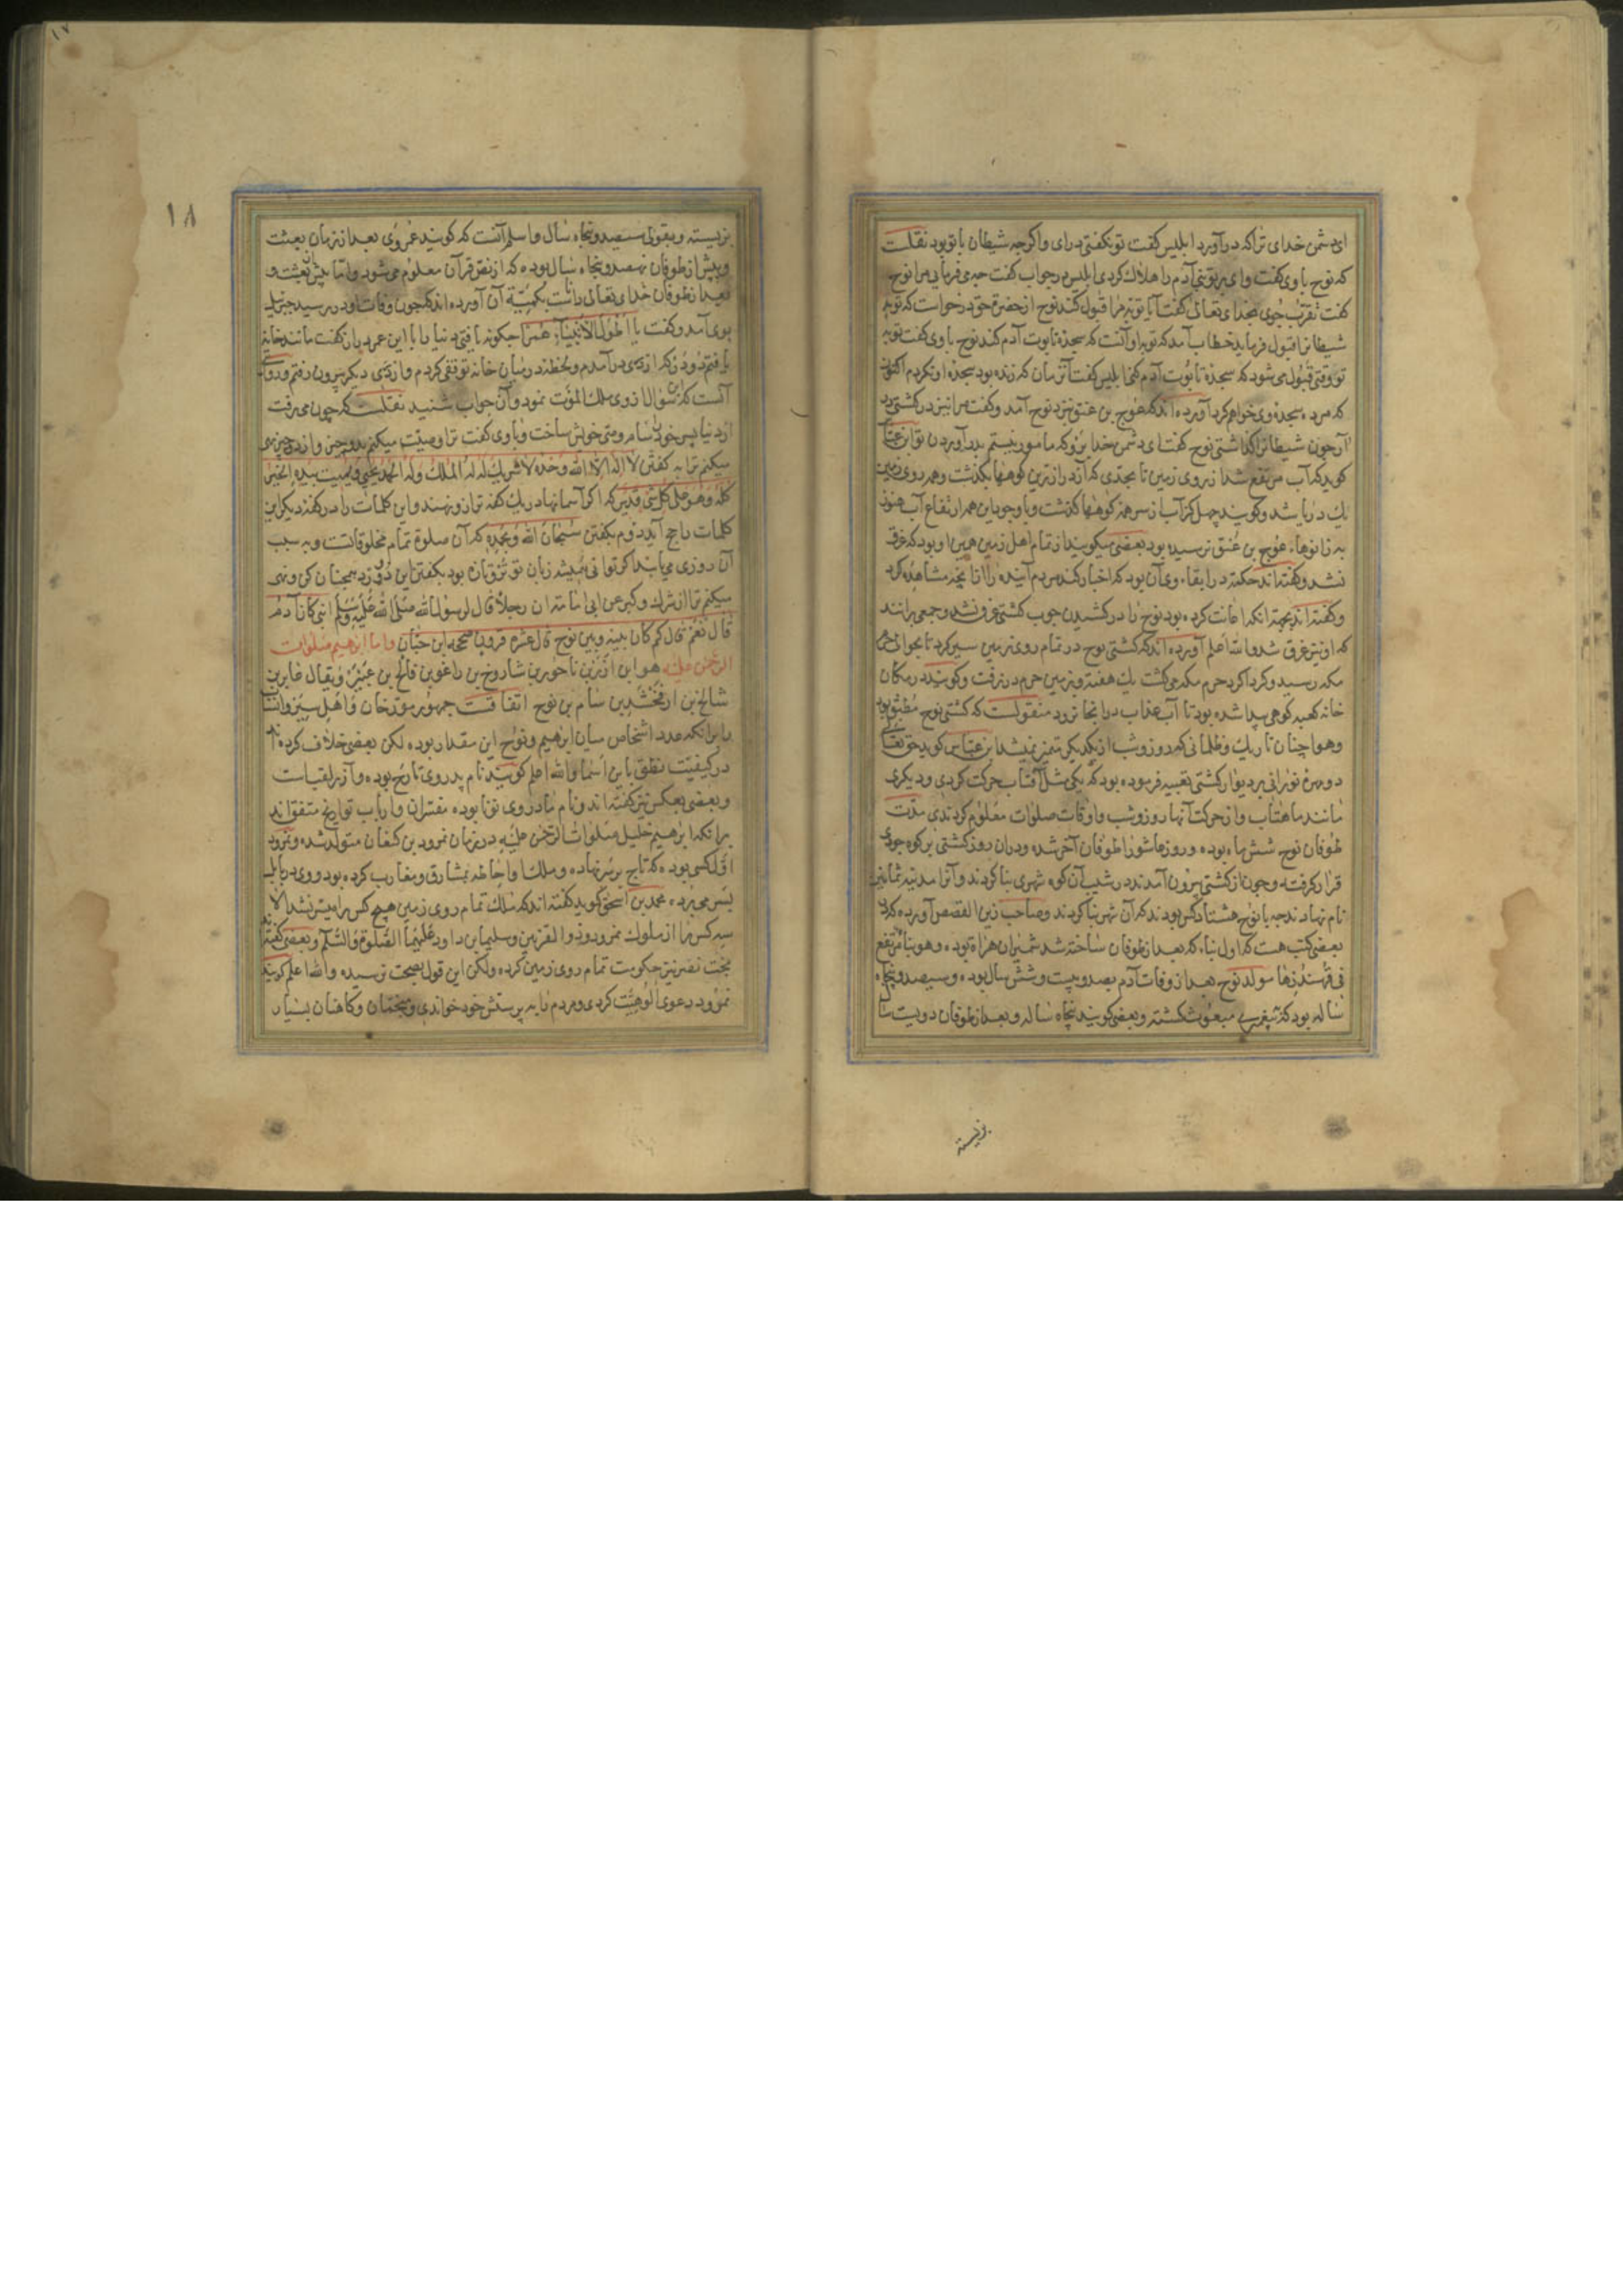 ای دشمن خدای ترا که درآورد ابلیس کفت تو نکفتی درای واکرچه شیطان با تو بود نقلست
که نوح باوی کفت وای بر تو تنی آدم را هلاك کردی ابلیس در جواب کفت چه می فرمایی مرا نوح
کفت تقرب جوی بخدای تعالی کفت آیا توبه مرا قبول کند نوح از حضرة حق درخواست که توبه
شیطانرا قبول فرماید خطاب آمد که توبه او آنست که سجده تابوت آدم کند نوح باوی کفت توبه
تو وقتی قبول می شود که سجده تابوت آدم کنی ابلیس کفت آنزمان که زنده بود سجده او نکردم اکنون
که مرده سجده وی خواهم کرد آورده اند که عوج بن عنق نزد نوح آمد وکفت مرا نیز در کشتی
آر چون شیطانرا کذاشتی نوح کفت ای دشمن خدا برو که مامور نیستم بدرآوردن تو ابن عباس
کوید که آب مرتفع شد از روی زمین تا بحدی که از درازترین کوهها بکذشت وهمه روی زمین
یك دریا شد وکویند چهل کز آب از سر همه کوهها کذشت وباوجود این همه ارتفاع آب هنوز
به زانوهاء عوج بن عنق نرسیده بود بعضی میکویند از تمام اهل زمین همین او بود که غرق
نشد وکفته اند حکمة در ابقاء وی آن بود که اخبار کند مردم آینده را از آنچه مشاهده کرد
وکفته اند بجهة آنکه اعانت کرده بود نوح را در کشیدن چوب کشتی غرق نشد وجمعی برانند
که او نیز غرق شد والله اعلم آورده اند که کشتی نوح در تمام روی زمین سیر کرد تا بحوالی حرم
مکه رسید وکرداکرد حرم مکه می کشت یك هفته وبزمین حرم درنرفت وکویند در مکان
خانه کعبه کوهی پیدا شده بود تا آب عذاب درانجا نرود منقولست که کشتی نوح مطبق بود
وهوا چنان تاریك وظلمانی که روز وشب از یکدیکر متمیز نمیشد ابن عباس کوید حق تعالی
دو مهره نورانی بر دیوار کشتی تعبیه فرموده بود که یکی مثل آفتاب حرکت کردی ودیکری
مانند ماهتاب واز حرکت آنها روز وشب واوقات صلوات معلوم کردندی مدت
طوفان نوح شش ماه بوده وروز عاشورا طوفان آخر شده ودران روز کشتی بر کوه جودی
قرار کرفته وچون از کشتی بیرون آمدند در شیب آن کوه شهری بنا کردند وآنرا مدینه ثمانین
نام نهادند چه با نوح هشتاد کس بودند که آن شهر بنا کردند وصاحب زین القصص آورده که در
بعضی کتب هست که اول بناء که بعد از طوفان ساخته شد شمیران هراة بوده وهو بناء مرتفع
فی قهندزها مولد نوح بعد از وفات آدم بصد وبیست وشش سال بوده وسیصد وپنجاه
ساله بود که به پیغمبری مبعوث کشته وبعضی کویند پنجاه ساله وبعد از طوفان دویست سال
بزیسته
۱۸
بزیسته وبقولی سیصد وپنجاه سال واسلم آنست که کویند عمر وی بعد از زمان بعثت
وپیش از طوفان نهصد وپنجاه سال بوده که از نص قرآن معلوم می شود واما پیش از بعثت و
بعد از طوفان خدای تعالی داناست بکمیة آن آورده اند که چون وفات او در رسید جبرئیل
بوی آمد وکفت یا اطول الانبیاء عمرا چکونه یافتی دنیا را با این عمر دراز کفت مانند خانه
یافتم دو در که از دری درآمدم ولحظه در میان خانه توقفی کردم واز دری دیکر بیرون رفتم وروایتی
آنست که این سوال از وی ملك الموت نمود وآن جواب شنید نقلست که چون می رفت
از دنیا پسر خود سام را وصی خویش ساخت وباوی کفت ترا وصیت میکنم بدو چیز واز دو چیز نهی
میکنم ترا به کفتن لا اله الا الله وحده لا شریك له له الملك وله الحمد یحیی ویمیت بیده الخیر
کله وهو علی کل شی قدیر که اکر آسمانها در یك کفه ترازو نهند واین کلمات را در کفه دیکر این
کلمات راجح آید دوم بکفتن سبحان الله وبحمده که آن صلوة تمام مخلوقاتست وبه سبب
آن روزی می یابند اکر توانی همیشه زبان تو تر وتازه بود بکفتن این دو ورد همچنان کن ونهی
میکنم ترا از شرك وکبر عن ابی امامة ان رجلا قال لرسول الله صلی الله علیه وسلم انبی کان آدم
قال نعم قال کم کان بینه وبین نوح قال عشرة قرون صححه ابن حبان واما ابراهیم صلوات
الرحمن علیه هو ابن آزر بن ناحور بن شاروخ بن راغو بن فالخ بن عیبر ویقال عابر بن
شالخ بن ارفخشد بن سام بن نوح اتفاقست جمهور مورخان واهل سیر وانساب
را برانکه عدد اشخاص میان ابراهیم ونوح این مقدار بوده لکن بعضی خلاف کرده اند
در کیفیت نطق باین اسما والله اعلم کویند نام پدر وی تارح بوده وآزر لقب است
وبعضی بعکس نیز کفته اند ونام مادر وی نونا بوده مفسران وارباب تواریخ متفق اند
برانکه ابرهیم خلیل صلوات الرحمن علیه در زمان نمرود بن کنعان متولد شده ونمرود
اول کسی بوده که تاج بر سر نهاده وملك واحاطه بمشارق ومغارب کرده بود ووی در بابل
بسر می برده محمد بن اسحق کوید کفته اند که ملك تمام روی زمین هیچ کس را میسر نشد الا
سه کس را از ملوك نمرود وذو القرنین وسلیمان بن داود علیهما الصلوة والسلم وبعضی کفته اند
بخت نصر نیز حکومت تمام روی زمین کرده ولکن این قول بصحت نرسیده والله اعلم کویند
نمرود دعوی الوهیت کردی ومردم را به پرستش خود خواندی ومنجمان وکاهنان بسیار